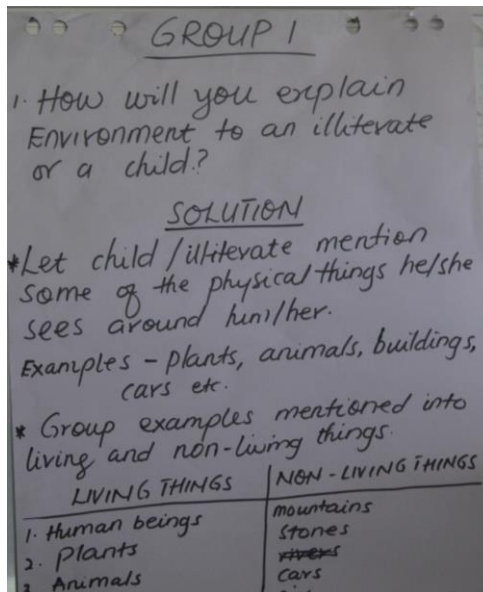 GROUP 1
1. How will you explain
Environment to an illiterate
or a child?
SOLUTION
*Let child/illiterate mention
some of the physical things he/she
sees around him/her.
Examples - plants, animals, buildings,
cars etc.
* Group examples mentioned into
living and non-living things.
LIVING THINGS NON-LIVING THINGS
1. Human beings mountains
2. Plants Stones
3. Animals rivers
cars